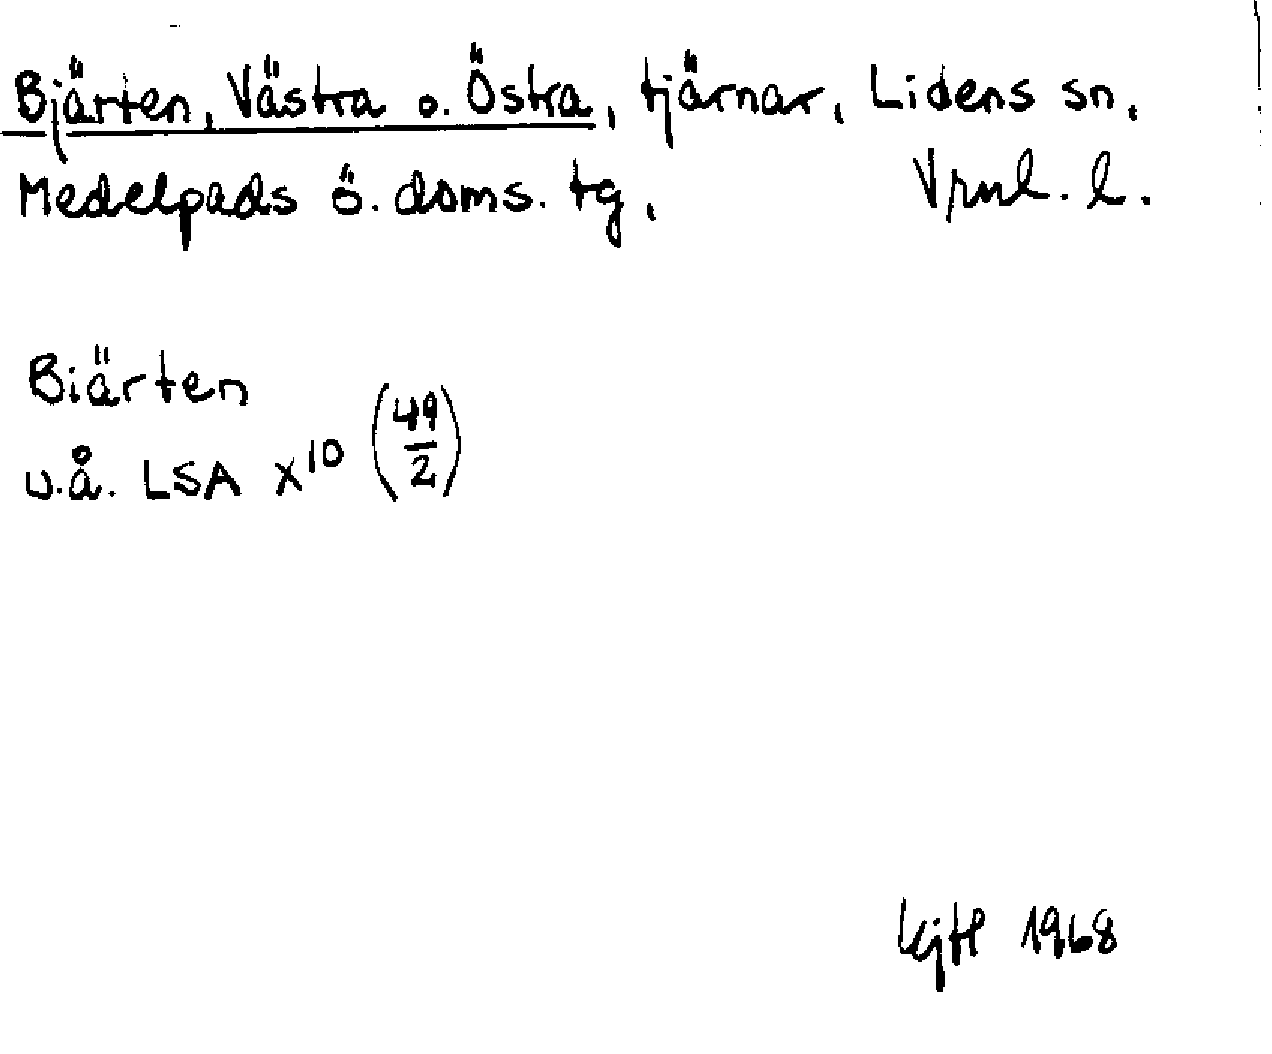 Bjärten, Västra o. Östra, tjärnar, Lidens sn,
Medelpads ö. doms. tg, Vrnl. l.
Biärten
u.å. LSA X¹⁰ (49/2)
1968